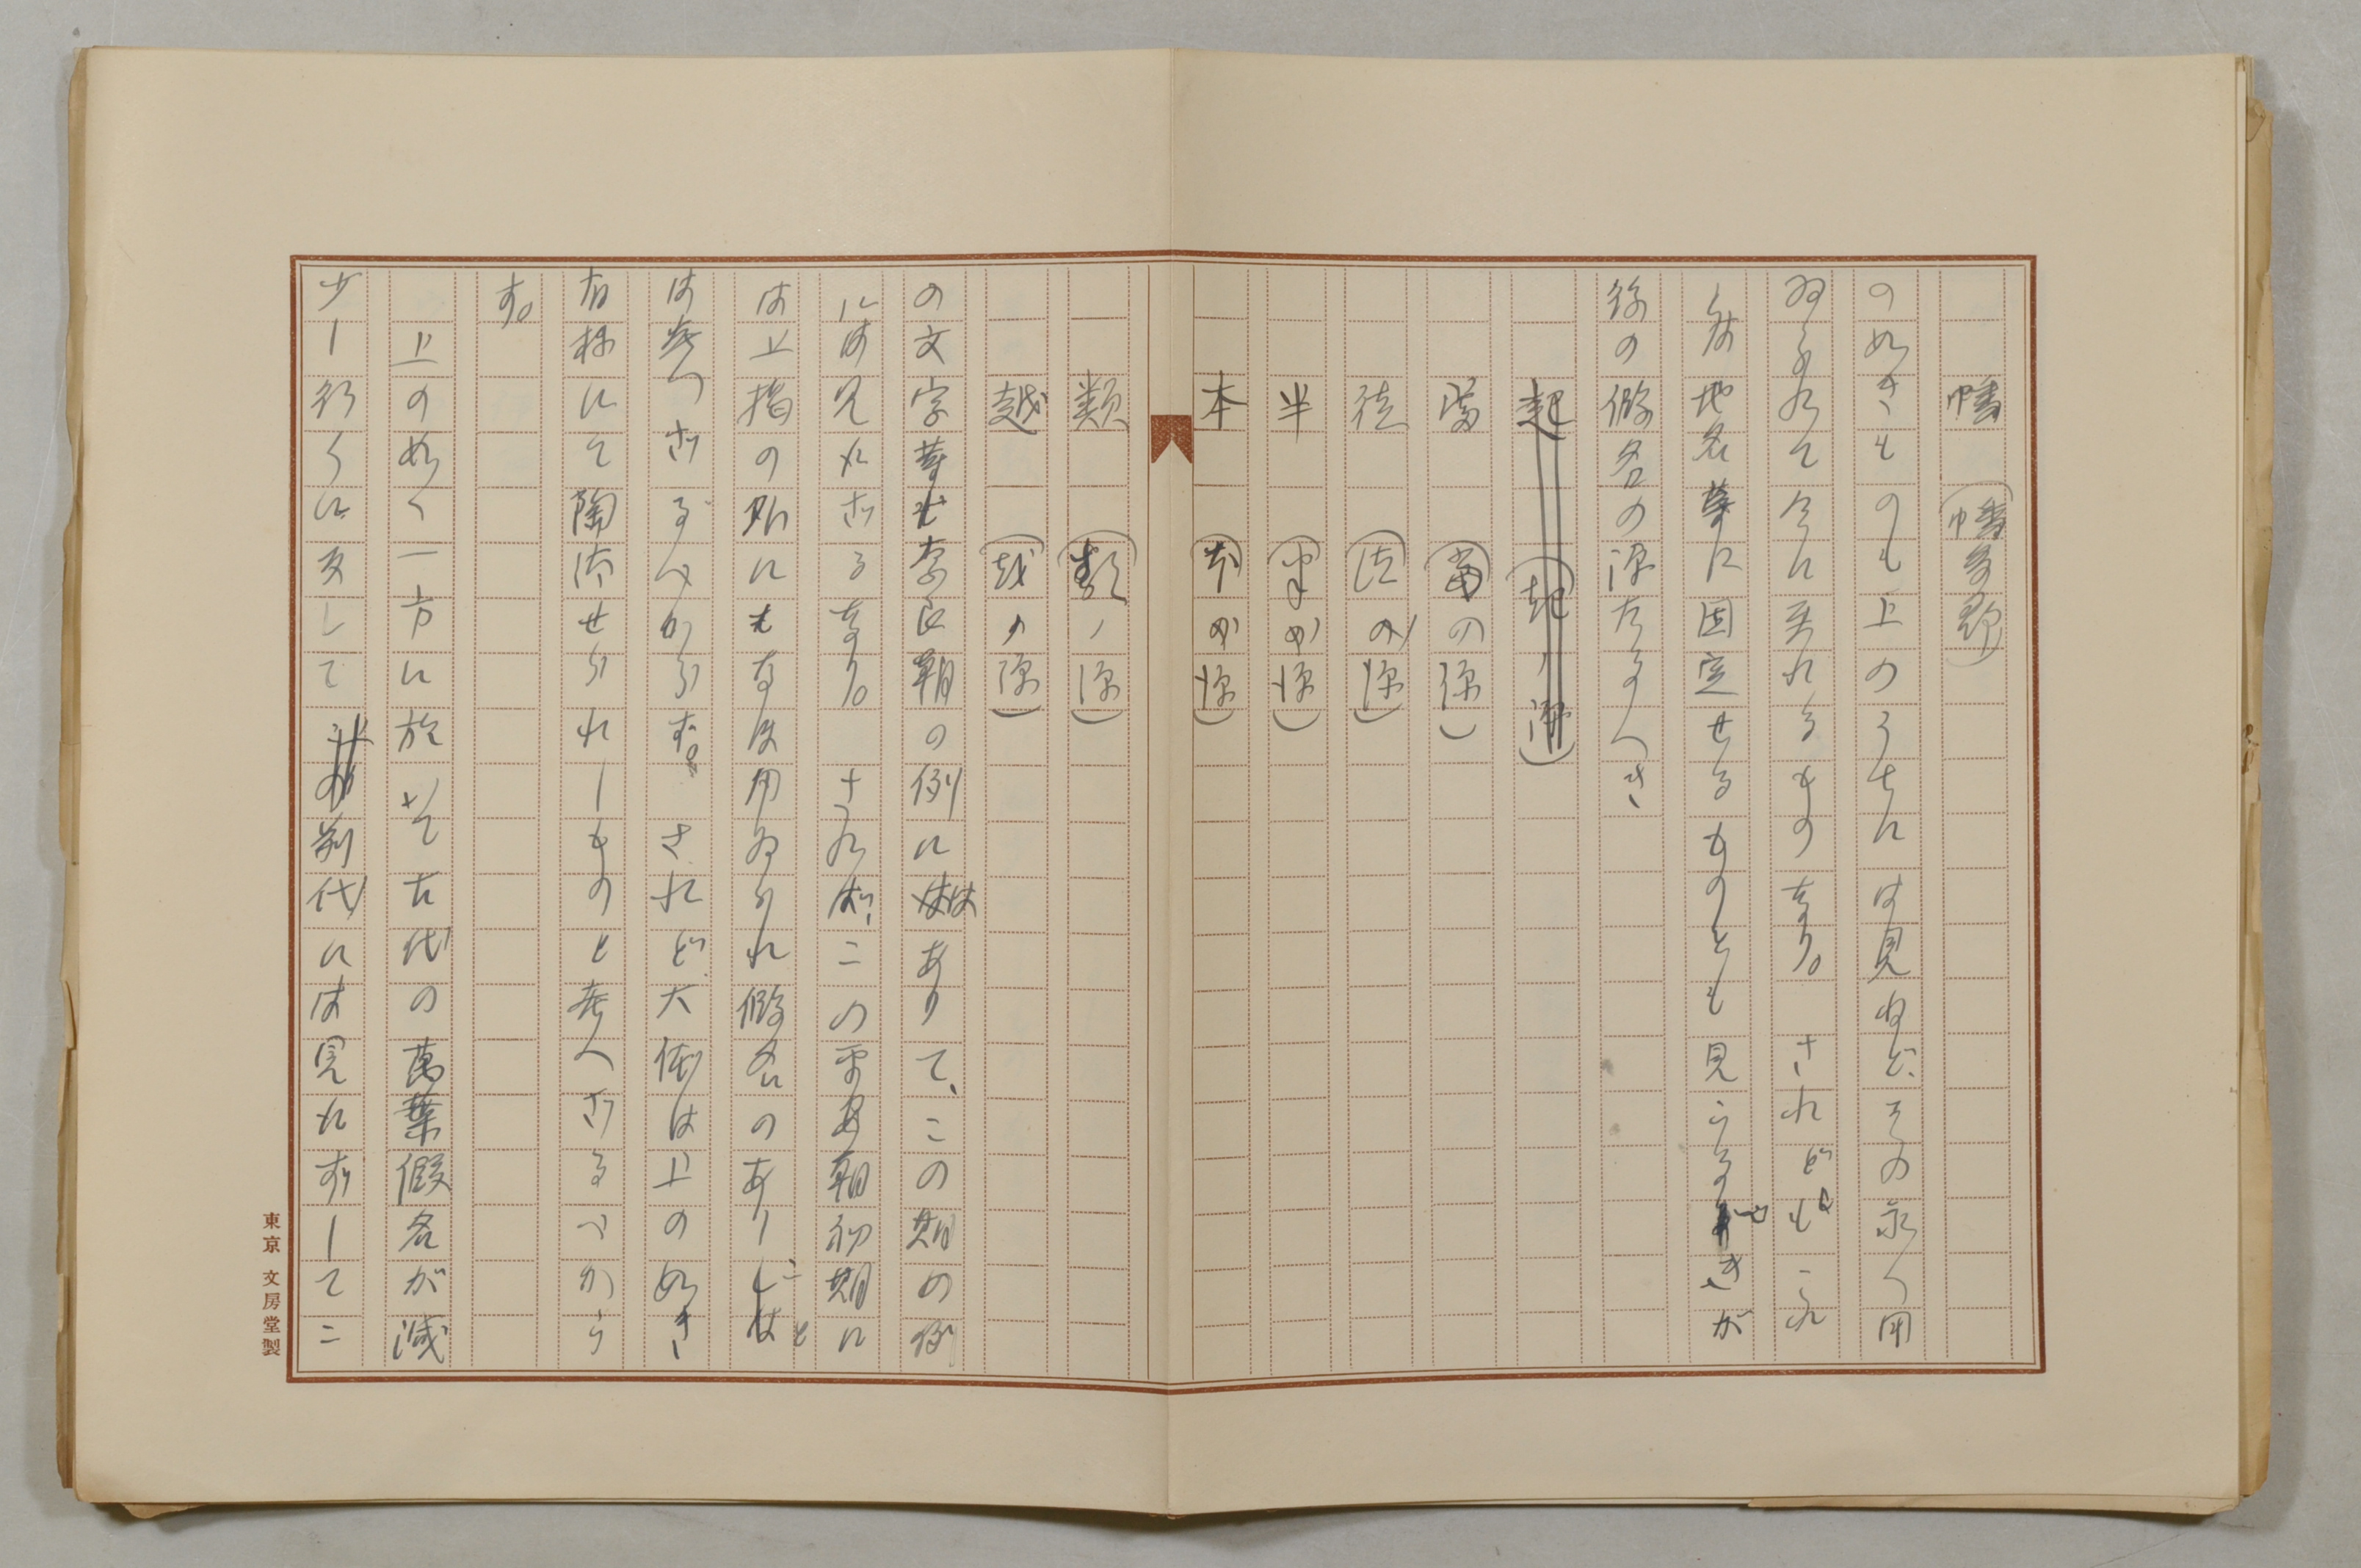 幡 (幡多郡)
のめきものも上のうちには見ねど、その永く用
ゐられて今に至れるものなり。されどもこれ
らは地名等に固定せるものとも見うるべきが
後の假名の源たるべき
起 (起ノ源)
當 (當の源)
徒 (徒の源)
半 (半の源)
本 (本の源)
類 (類ノ源)
越 (越の源)
の文字等も奈良朝の例にはありて、この期の例
には見えざるなり。さればこの平安朝初期に
は上揭の外にもなほ用ゐられ假名のありしと
は考へざるべからず。されど大体は上の如き
有様にて陶汰せられしものと考へざるべから
ず。
上の如く一方に於いて古代の萬葉假名が減
少し行くに反して前代には見えずしてこ
東京 文房堂製